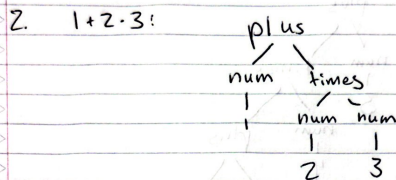 2. 1+2·3:
plus
num times
1 num num
2 3